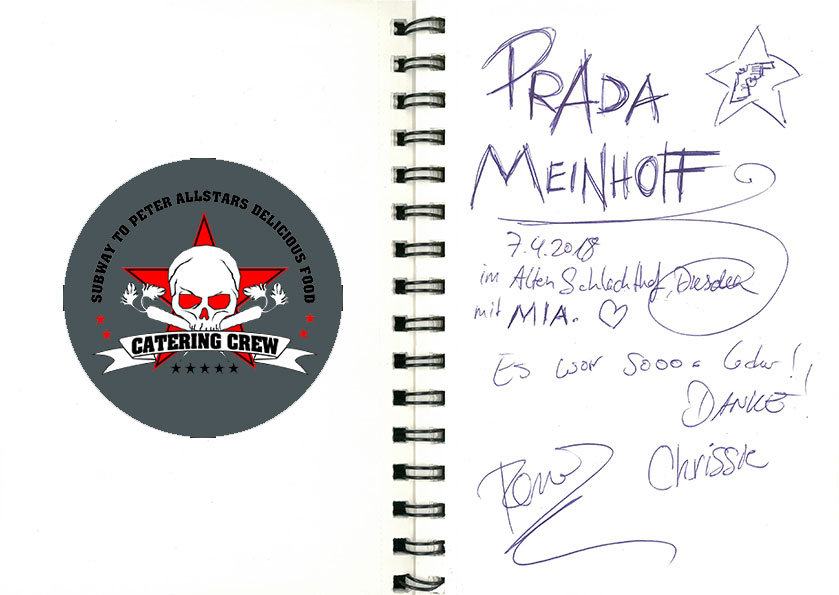 SUBWAY TO PETER ALLSTARS DELICIOUS FOOD
CATERING CREW
PRADA
MEINHOFF
7.4.2018
im Alten Schlachthof, Dresden
mit MIA. ♡
Es war sooo lecker!
DANKE!
Chrissie